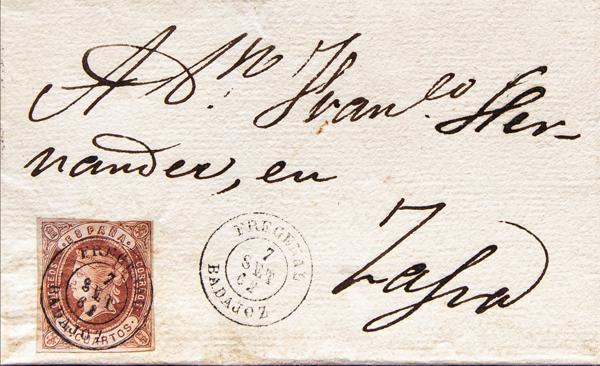 A Dn. Franco. Her-
nandez, en
Zafra
ESPAÑA
CORREOS
CUARTOS
FREGENAL
7
SET
62
BADAJOZ
FREGENAL
7
SET
62
BADAJOZ